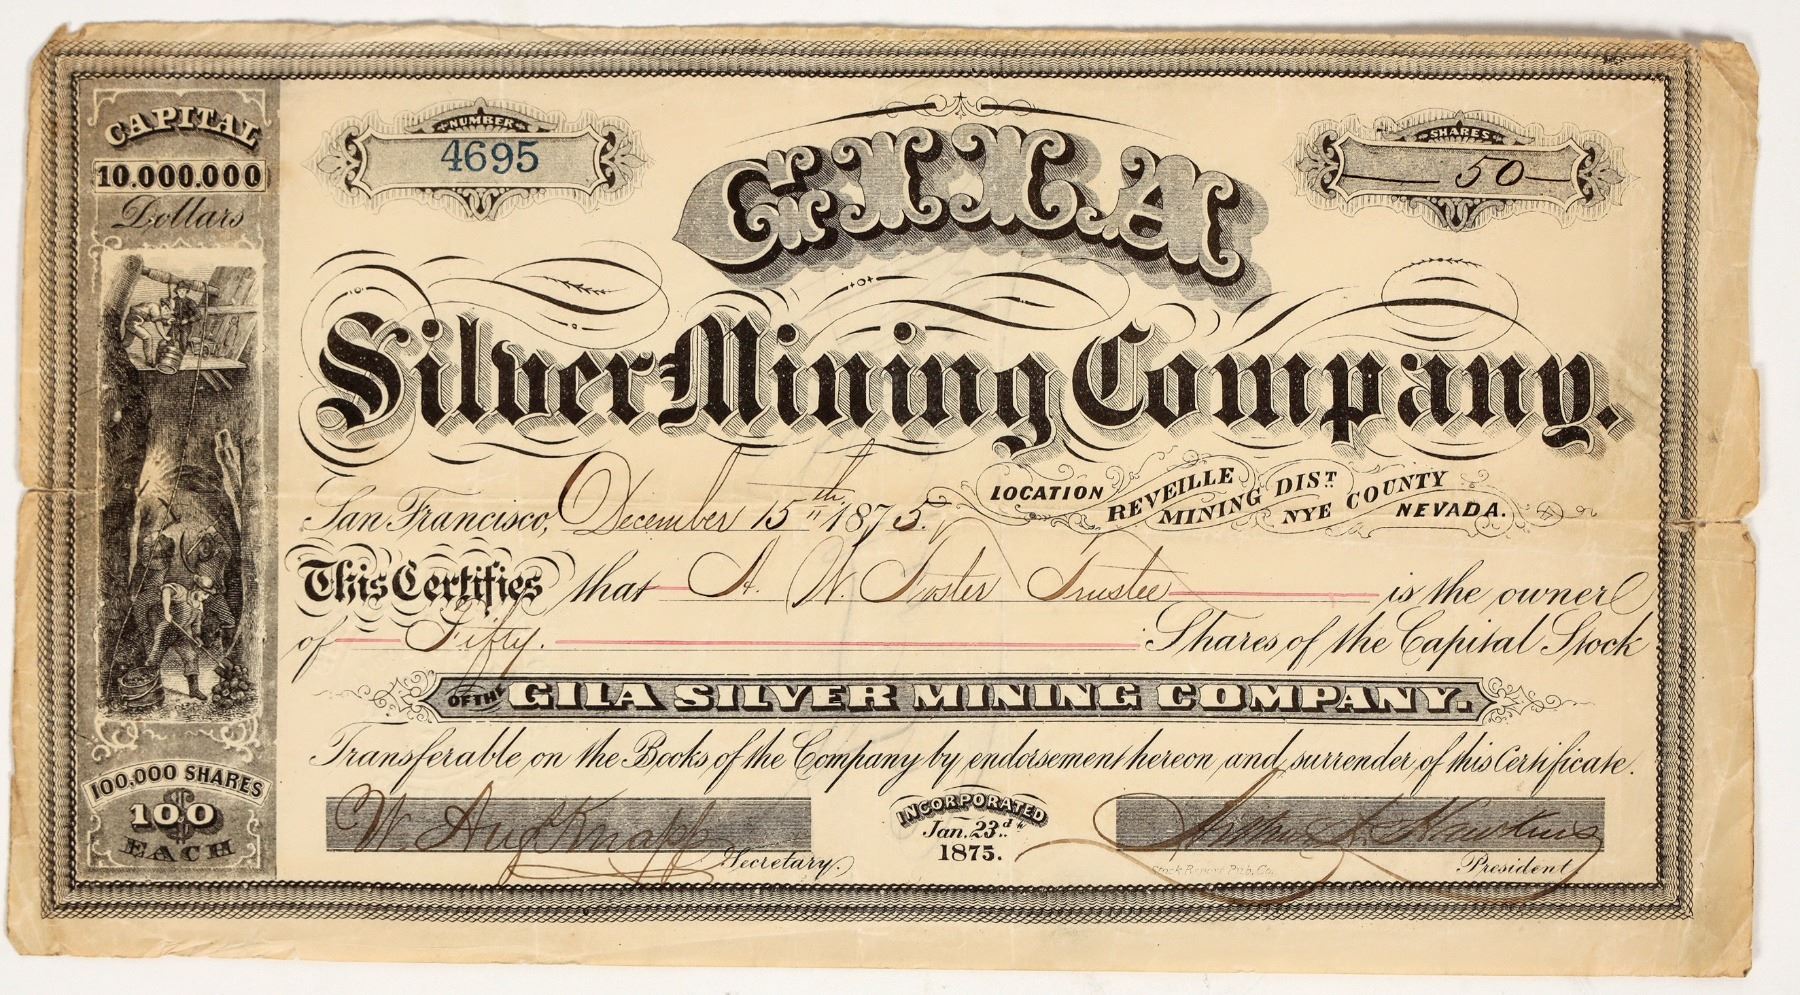 CAPITAL
10.000.000
Dollars
NUMBER
4695
GILA
SHARES
50
Silver Mining Company.
San Francisco, December 15th 1875.
LOCATION REVEILLE MINING DIST. NYE COUNTY NEVADA.
This Certifies that A. W. Foster Trustee is the owner
of Fifty. Shares of the Capital Stock
OF THE GILA SILVER MINING COMPANY.
Transferable on the Books of the Company by endorsement hereon and surrender of this Certificate.
100,000 SHARES
$
100
EACH
W. Aug Knapp
Secretary.
INCORPORATED
Jan. 23d
1875.
Hawkins
President
Stock Report Pub. Co.